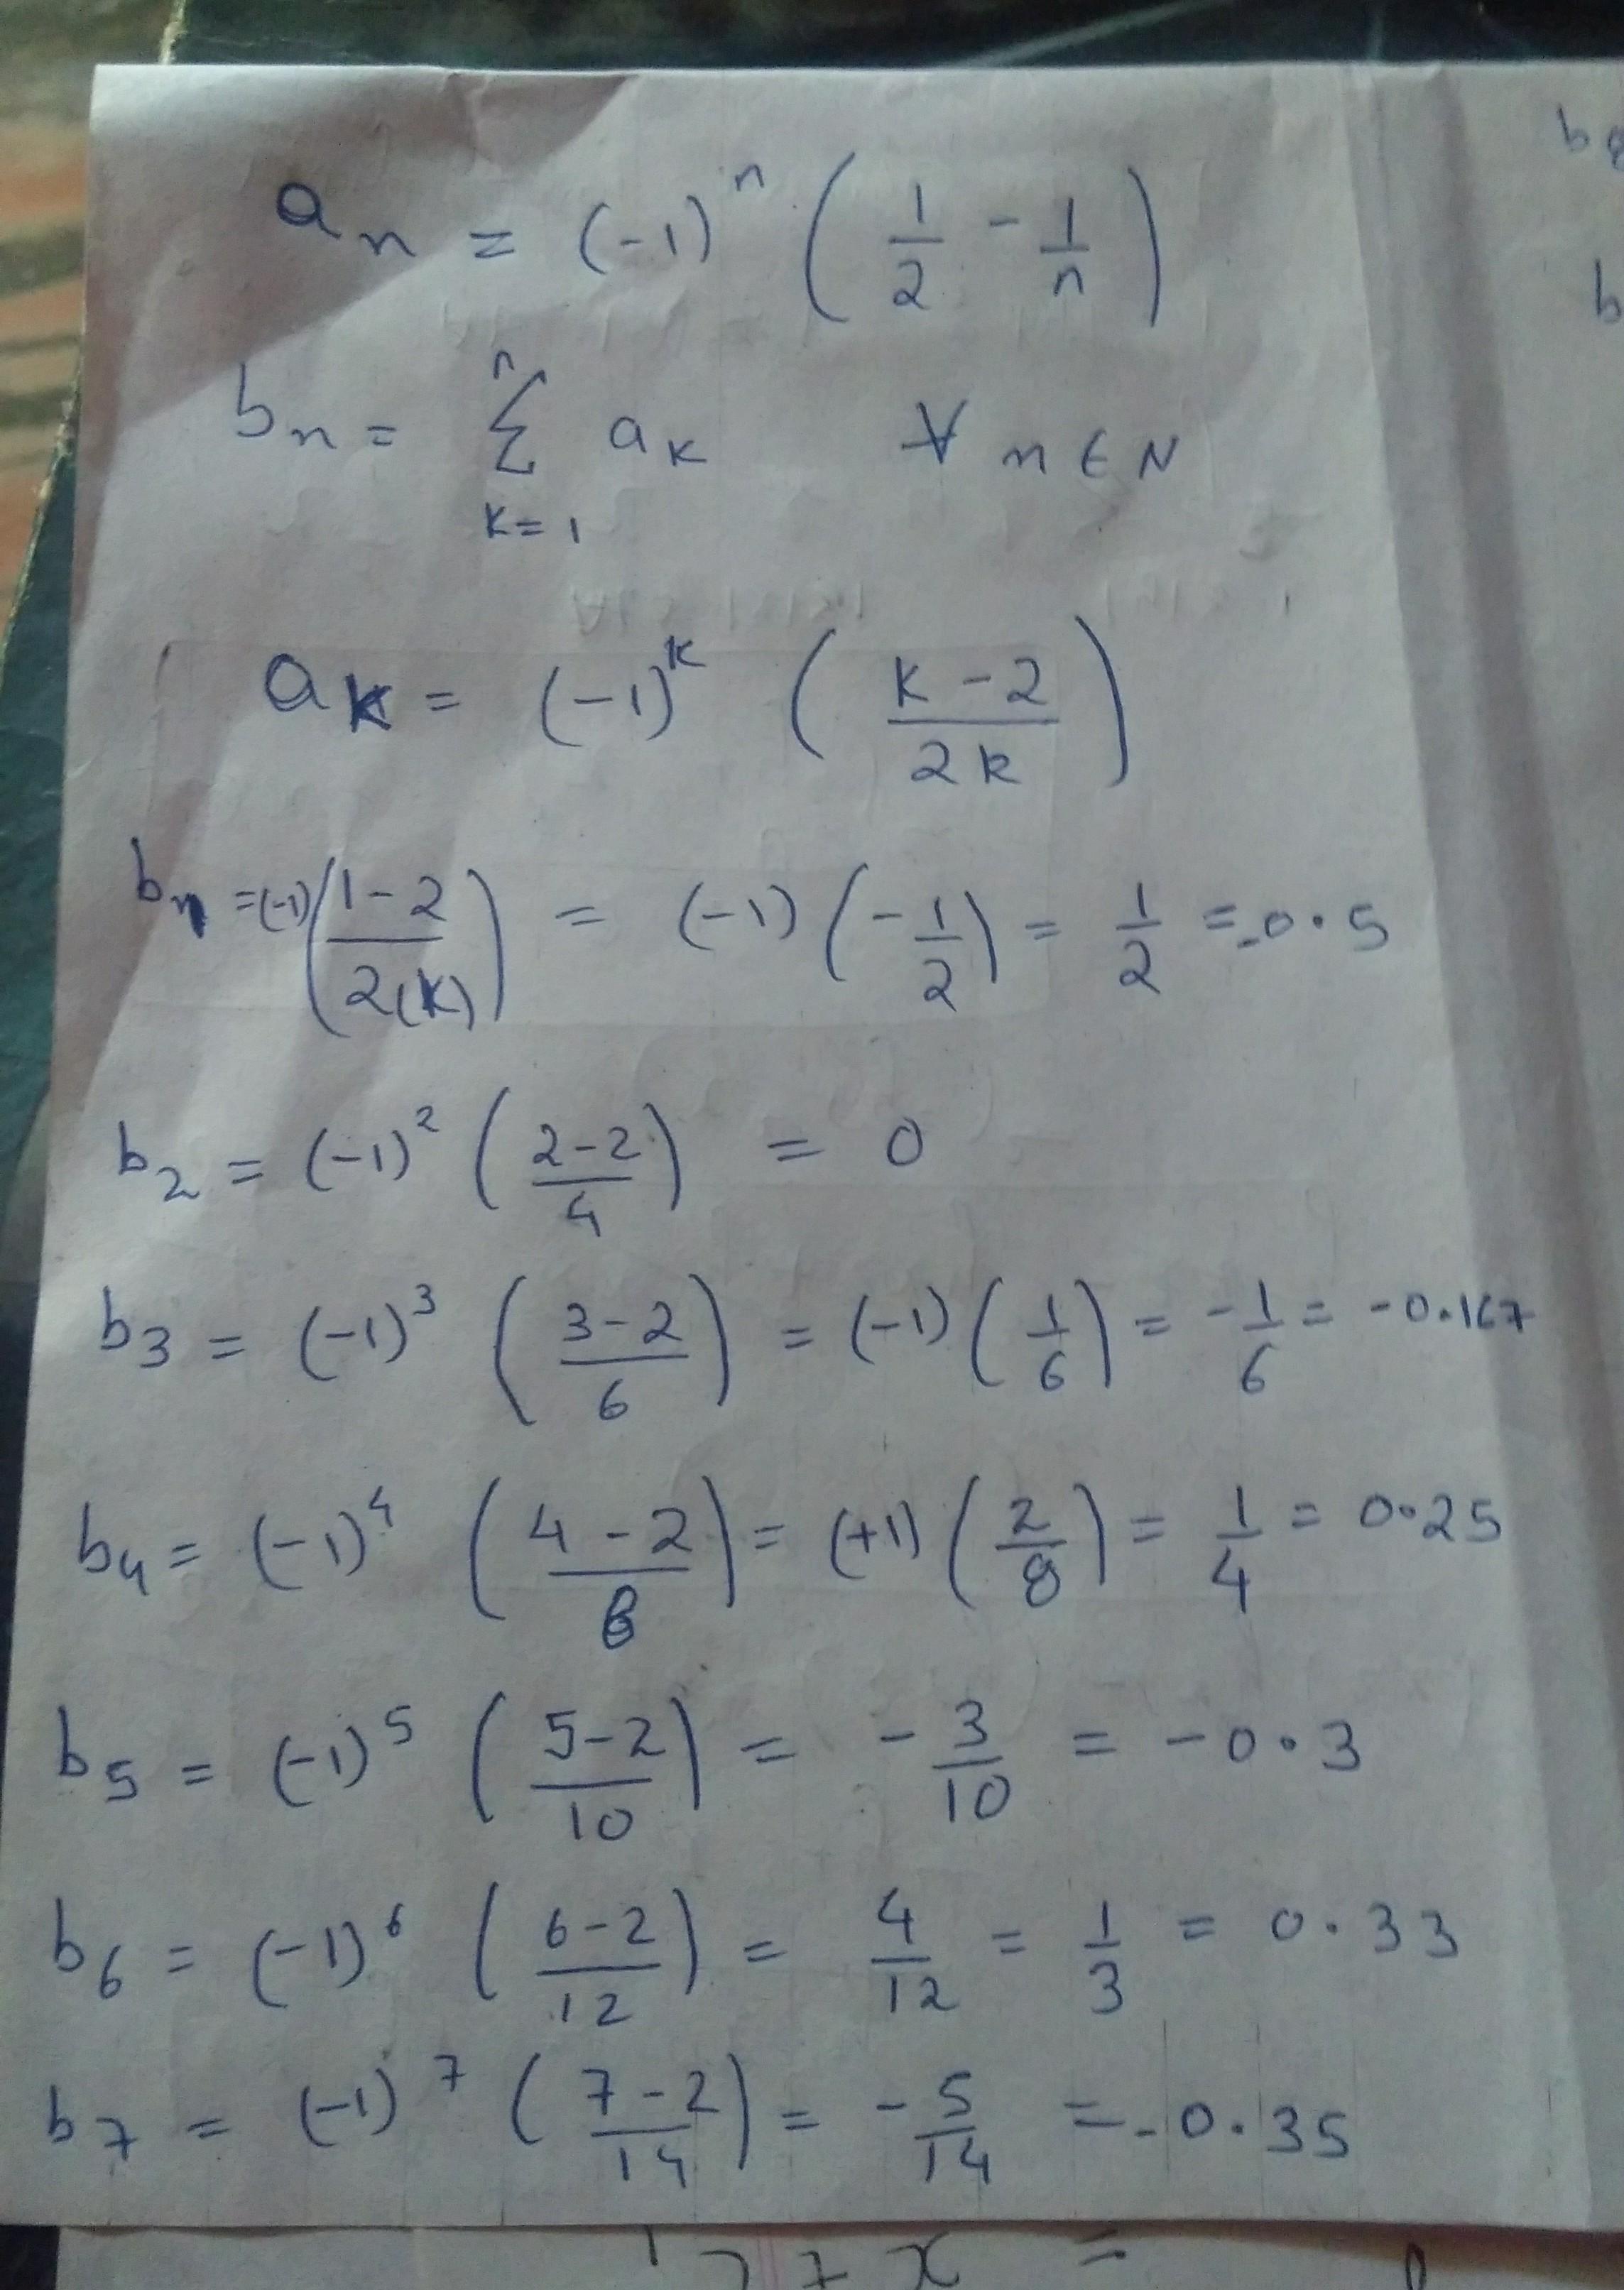 a_n = (-1)^n (1/2 - 1/n)
b_n = Σ_{k=1}^{n} a_k ∀ n ∈ N
a_k = (-1)^k ((k-2)/(2k))
b_1 = (-1) ((1-2)/(2(k))) = (-1) (-1/2) = 1/2 = -0.5
b_2 = (-1)^2 ((2-2)/4) = 0
b_3 = (-1)^3 ((3-2)/6) = (-1) (1/6) = -1/6 = -0.167
b_4 = (-1)^4 ((4-2)/8) = (+1) (2/8) = 1/4 = 0.25
b_5 = (-1)^5 ((5-2)/10) = -3/10 = -0.3
b_6 = (-1)^6 ((6-2)/12) = 4/12 = 1/3 = 0.33
b_7 = (-1)^7 ((7-2)/14) = -5/14 = -0.35